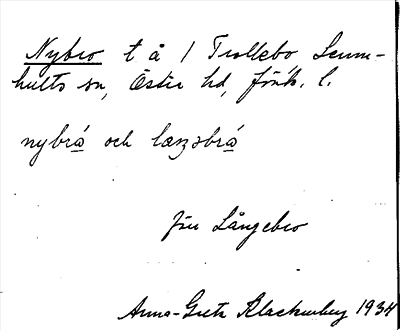 Nybro t å / Trollebo, Lenn-
hults sn, Östra hd, Jönk. l.
nybrá och læŋəbrá
Jfr Långebro
Anna-Greta Blackenberg 1934